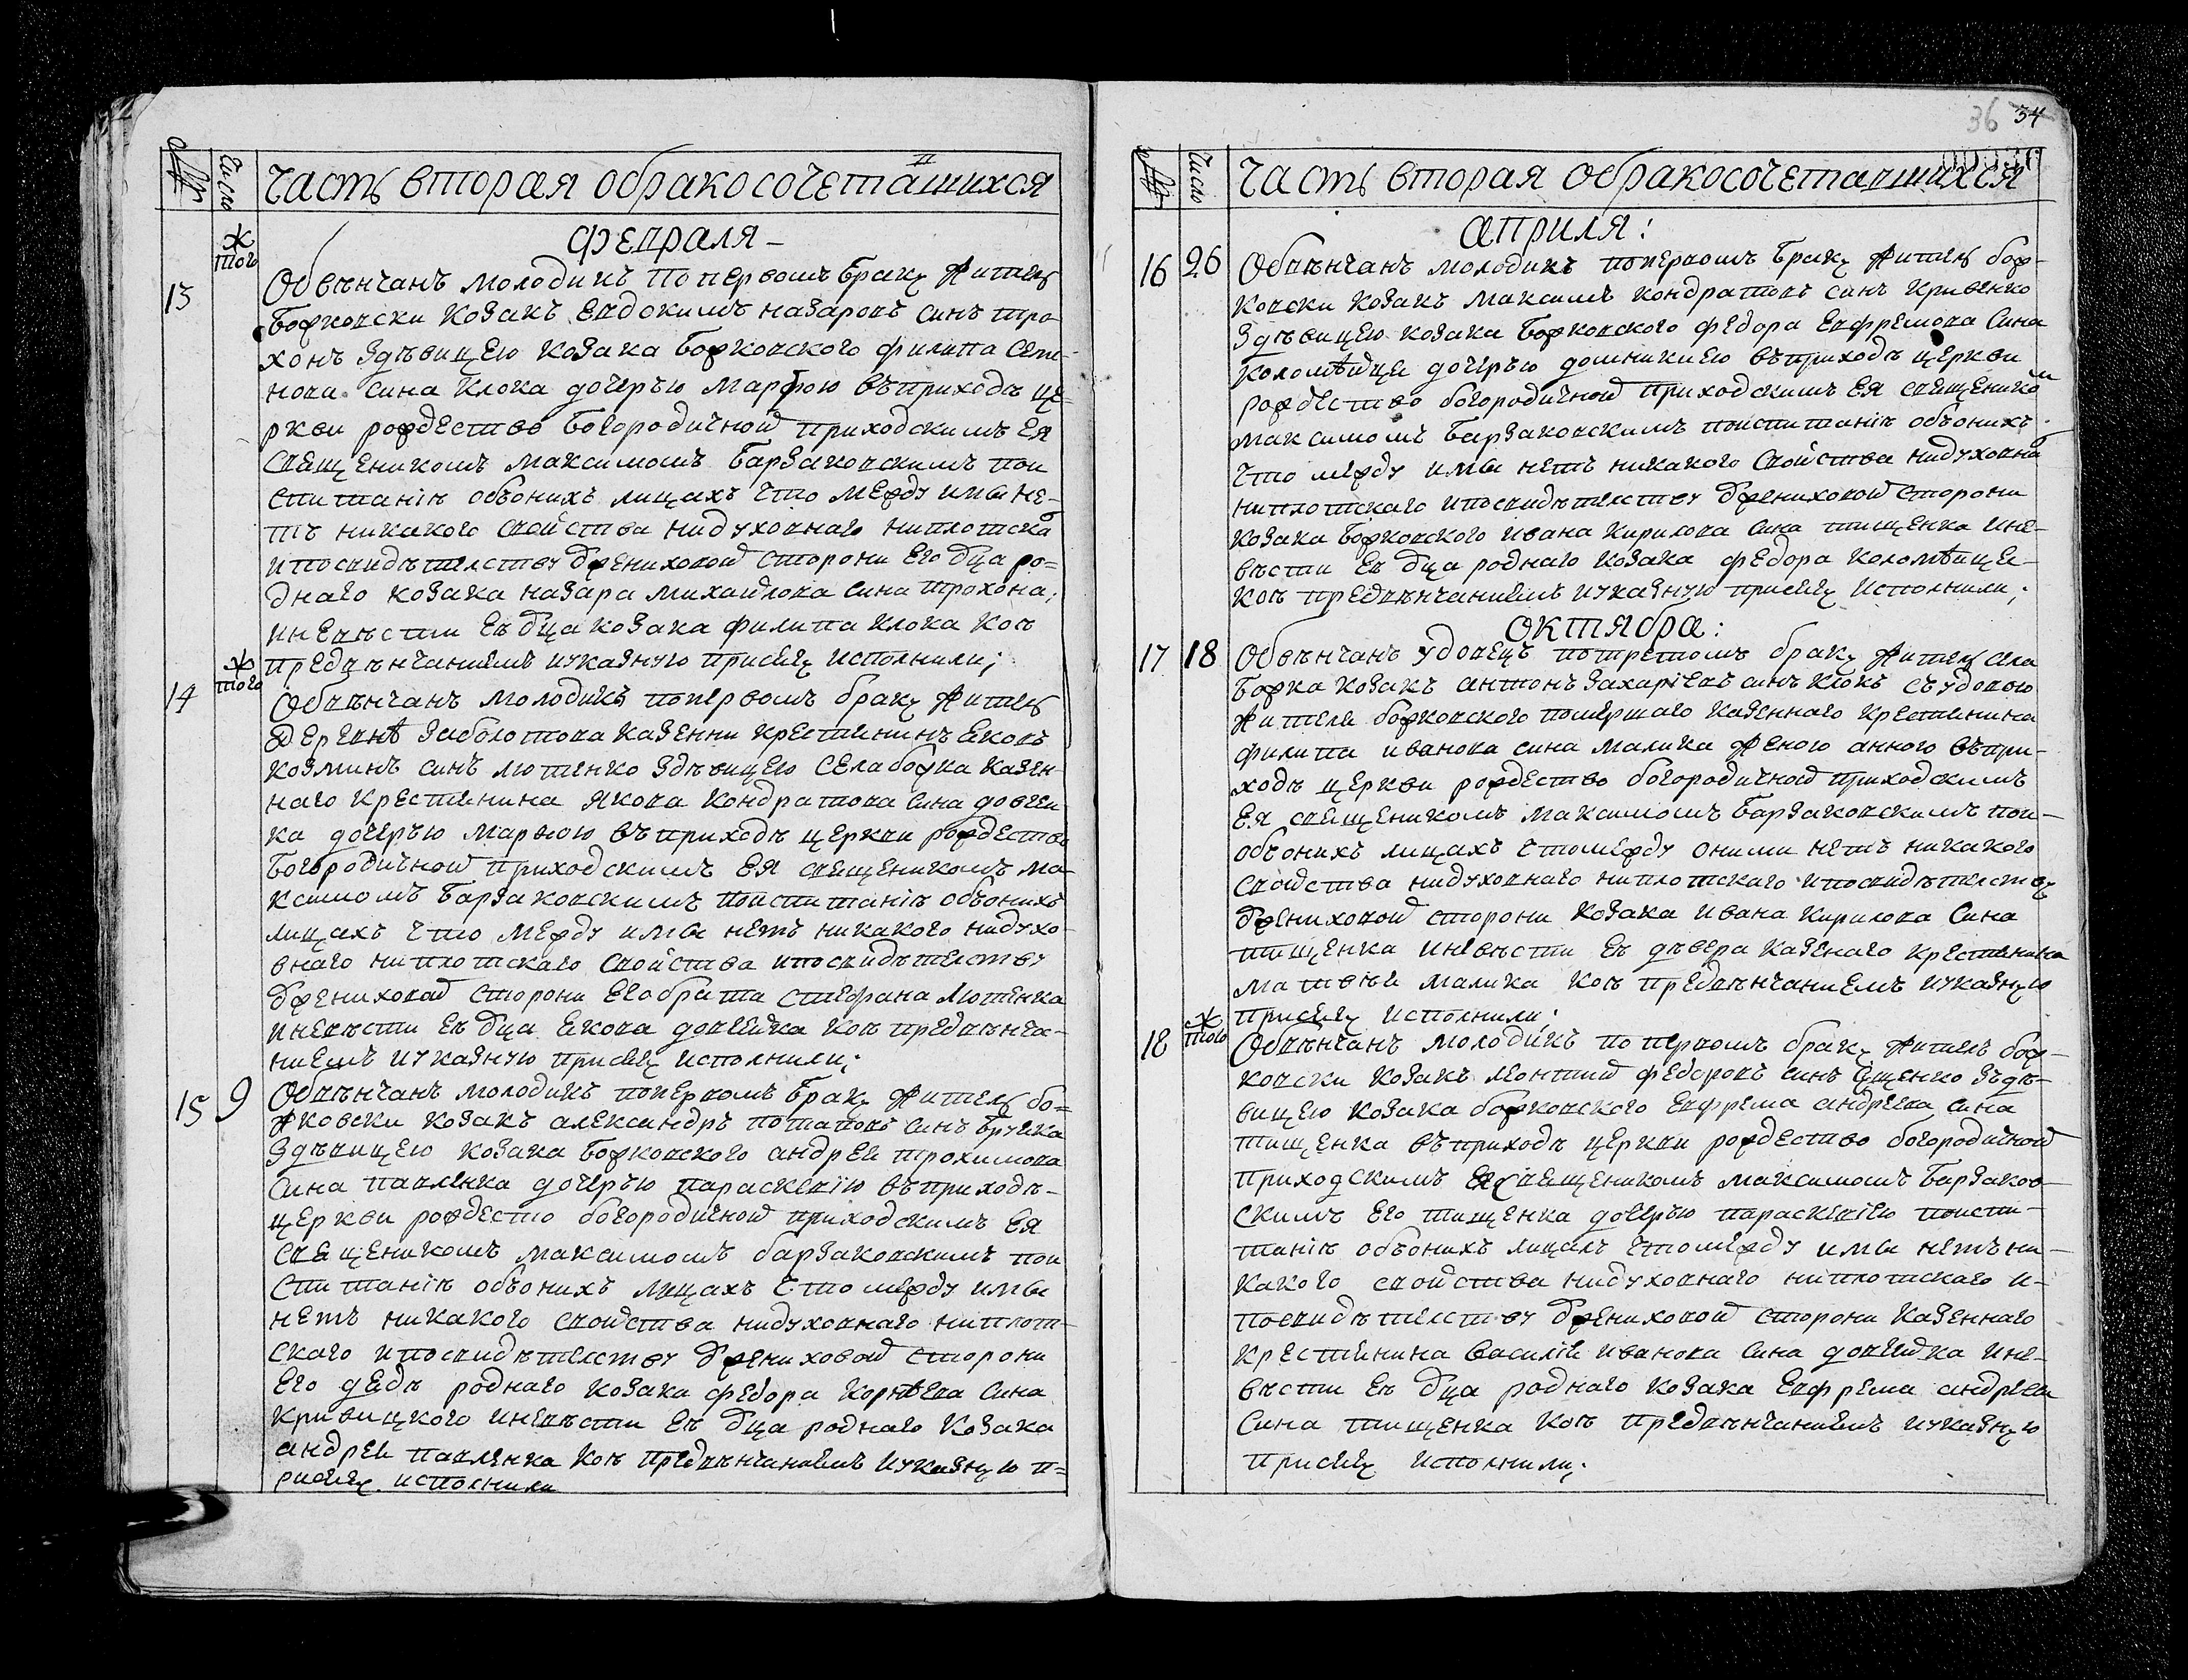 №
Число
Часть вторая о бракосочеташихся
Февраля
13
тогож
Обвѣнчанъ молодикъ по первомъ браку житель
божковски козакъ Евдокимъ назаровъ синъ тро-
хонъ здѣвицею козака божковского филипа семе-
нова сина клока дочерью марфою въприходѣ це-
ркви рождество богородичной приходскимъ ея
священикомъ максимомъ барзаковскимъ поис-
питанію обоонихъ лицахъ что между имы не-
тъ никакого свойства нидуховнаго ниплотска
ипосвидѣтелству жениховой сторони его оца ро-
днаго козака назара михайлова сина трохона,
иневѣсти еѣ оца козака филипа клока коѣ
предвѣнчаниемъ иуказную присягу исполнили;
14
тогож
Обвѣнчанъ молодикъ попервомъ браку житель
деревнѣ заболотова казенни крестянинъ яковъ
козминъ синъ лютенко здѣвицею села божка казен-
наго крестянина якова кондратова сина довгеи
ка дочерью марѳою въприходѣ церкви рождество
богородичной приходскимъ ея священикомъ ма-
ксимомъ барзаковскимъ поиспитанію обоонихъ
лицахъ что между имы нетъ никакого нидухо-
внаго ниплотскаго свойства ипосвидѣтелству
жениховой сторони его брата стефана лютенка
иневѣсти еѣ оца якова довгейка коѣ предвѣнча-
ниемъ иуказную присягу исполнили;
15 9
Обвѣнчанъ молодикъ попервомъ браку житель бо-
жковски козакъ александръ потаповъ синъ бруяка
здѣвицею козака божковского андрея трохимова
сина павленка дочерью параскевїю въприходѣ
церкви рождестю богородичной приходскимъ ея
священикомъ максимомъ барзаковскимъ пои
спитанію обоонихъ лицахъ что между имы
нетъ никакого свойства нидуховнаго ниплот-
скаго ипосвидѣтелству жениховой сторони
его дядѣ роднаго козака федора корнѣева сина
кривицкого иневѣсти еѣ оца роднаго козака
андрея павленка коѣ предвѣнчаниемъ иуказную п-
рисягу исполнили
36 34
№
Число
Часть вторая о бракосочетавшихся
Априля:
16 26
Обвѣнчанъ молодикъ попервомъ браку житель бож-
ковски козакъ максимъ кондратовъ синъ кривенко
здѣвицею козака божковского федора евфремова сина
коломѣйця дочерью домникиею въприходѣ церкви
рождество богородичной приходскимъ ея священико
максимомъ барзаковскимъ поиспитанію обоонихъ
что между имы нетъ никакого свойства нидуховна
ниплотскаго ипосвидѣтелству жениховой сторони
козака божковского ивана кирилова сина тищенка ине-
вѣсти еѣ оца роднаго козака федора коломѣйця
коѣ предвѣнчаниемъ иуказную присягу исполнили;
Октября:
17 18
Обвѣнчанъ удовецъ потретомъ браку житель села
божка козакъ антонъ захарїевъ синъ клокъ съ удовою
жителя божковского помершаго казенного крестянина
филипа иванова сина малика женою анною въпри-
ходѣ церкви рождество богородичной приходскимъ
ея священикомъ максимомъ барзаковскимъ пои-
обоонихъ лицахъ чтомежду оними нетъ никакого
свойства нидуховнаго ниплотскаго ипосвидѣтелству
жениховой сторони козака ивана кирилова сина
тищенка иневѣсти еѣ дѣвера казенаго крестянина
матвѣя малика коѣ предвѣнчаниемъ иуказную
присягу исполнили;
18
тогож
Обвѣнчанъ молодикъ по первомъ браку житель бож-
ковски козакъ леонтий федоровъ синъ ященко здѣ-
вицею козака божковского евфрема андреева сина
тищенка въприходѣ церкви рождество богородичной
приходскимъ ея священикомъ максимомъ барзаков-
скимъ его тищенка дочерью параскевїею поиспи-
танію обоонихъ лицахъ чтомежду имы нетъ ни-
какого свойства нидуховнаго ниплотскаго и-
посвидѣтелству жениховой сторони казенного
крестянина василїя иванова сина довгейка ине-
вѣсти еѣ оца роднаго козака евфрема андреева
сина тищенка коѣ предвѣнчаниемъ иуказную
присягу исполнили;